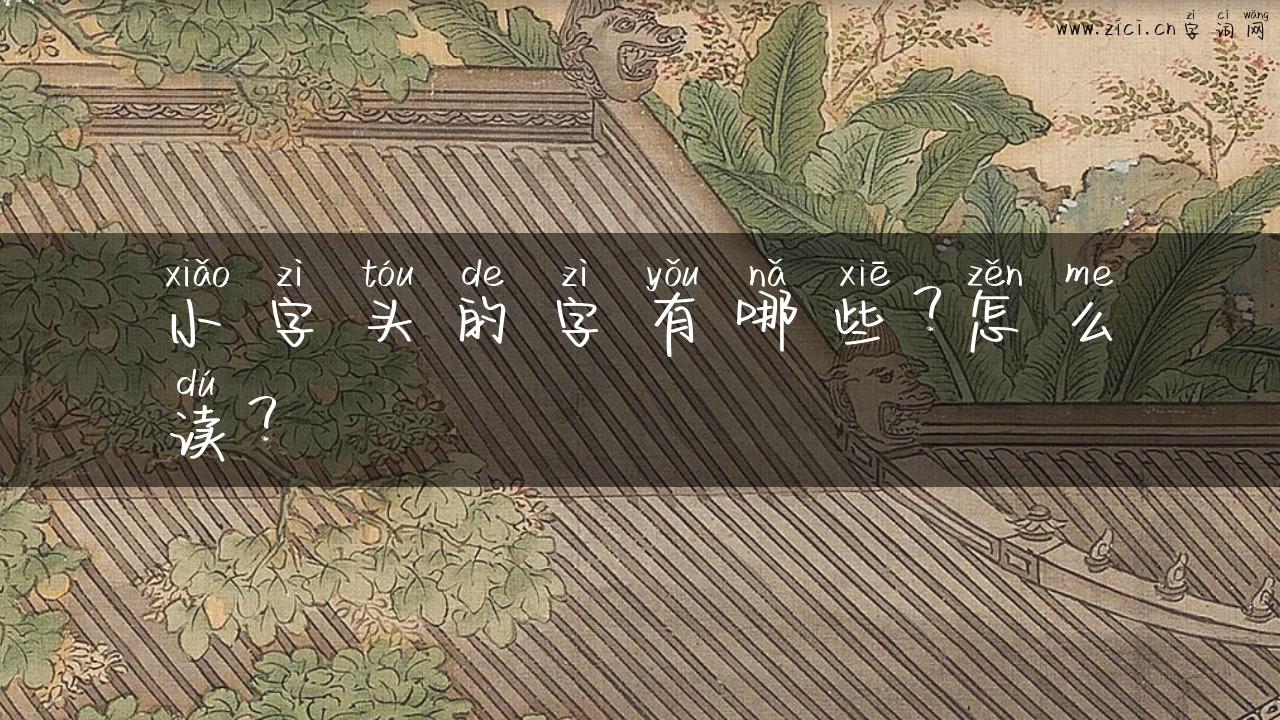 www.zici.cn zì cí wǎng
字词网
xiǎo zì tóu de zì yǒu nǎ xiē zěn me
小字头的字有哪些?怎么
dú
读?